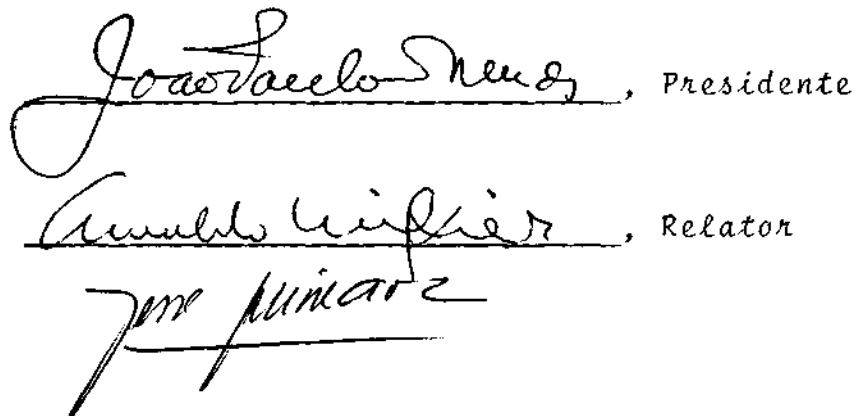 João Paulo Mendes, Presidente
Arnaldo Niskier, Relator
José